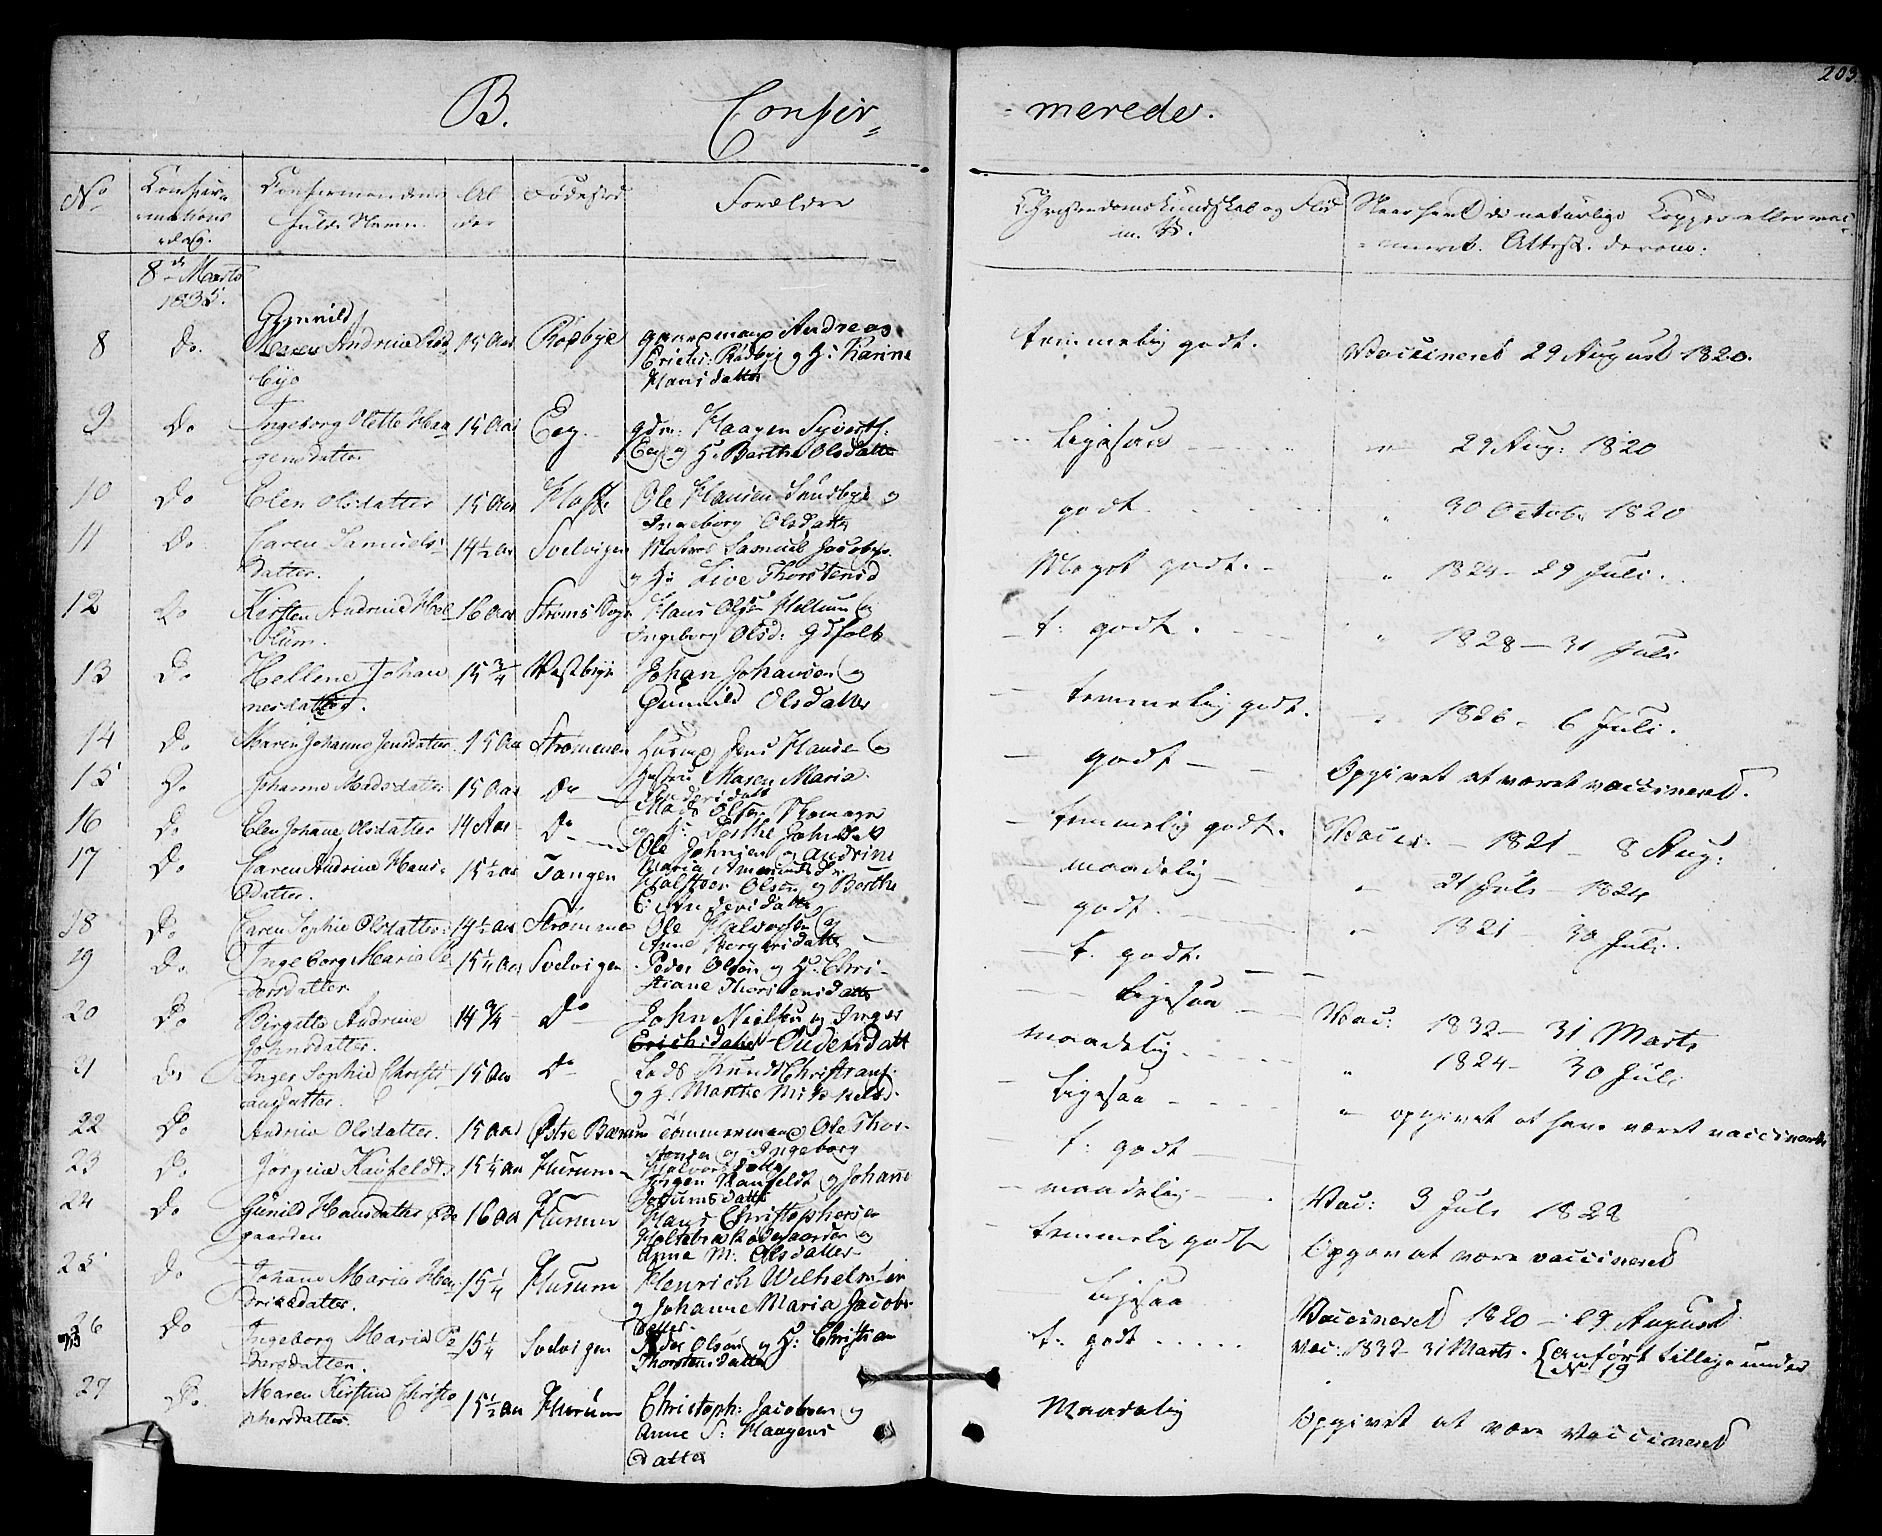 203.
B. Confir=
-merede.
No
Confir-
mations
dag.
Confirmandens
fulde Navn.
Al
der
Fødested
Forældre
Christendoms Kundskab og Flid
m. v.
Naar havt de naturlige Kopper eller vac-
cineret. Attest. derom:
8de Marts
1835.
8 Do. Gunnild
Maren Andrine Rød
bye 15 Aar Rødbye Andreas
Erichs: Rødbye og H: Karine
Hansdatter temmelig godt. Vaccineret 29 August 1820.
9 Do Ingeborg Olette Haa
gensdatter 15 Aar Eeg gdm: Haagen Syverts:
Eeg og H. Berthe Olsdatter ligesaa 29 Aug: 1820
10 Do Elen Olsdatter 15 Aar Ole Hansen Sundbye og
Ingeborg Olsdatter godt. 30 Octobr 1820
11 Do Caren Samuels
datter. 14½ Aar Svelvigen Matros Samuel Jacobs.
og H: Live Thorstensd Meget godt. 1824 - 29 Juli.
12 Do Kirsten Andrine Hel
lum. 16 Aar Hans Olsen Hellum og
Ingeborg Olsd: Gdfolk t: godt. 1828 - 31 Juli
13 Do Hellene Johan
nesdatter. 15¾ Vestbye Johan Johansen og
Gunnild Olsdatter temmelig godt. 1826 - 6 Juli.
14 Do Maren Johanne Jensdatter 15 Aar Strømmen Jens Hansen og
Maren Maria godt Opgivet at været vaccineret.
15 Do Johanne Madsdatter 15 Aar Do Mads Olsen
og H: Berthe temmelig godt. Vacci: - 1821 - 8 Aug:
16 Do Elen Johane Olsdatter 14 Aar Do Ole Johnsen og Andrine
Maria Amundsd: maadelig 21 Juli 1824
17 Do Caren Andrine Hans
datter. 15½ Aar Tangen Olsen og Berthe
Andersdatter godt. 1821 30 Juli.
18 Do Caren Sophie Olsdatter 14½ Aar Strømmen Ole Halvorsen og
Anne Borgersdatter t. godt.
19 Do Ingeborg Maria Pe
dersdatter 15¼ Aar Svelvigen Peder Olsen og H: Chri-
stiane Thorstensdatter ligesaa Vac: 1832 - 31 Marts
20 Do Birgitte Andrine
Johnsdatter. 14¾ Do John Nielsen og Inger
Erichsdatter Gudensdatt maadelig. 1824 - 30 Juli
21 Do Inger Sophie Christi
ansdatter. 15 Aar Do Lods Knud Christians:
og H. Marthe ligesaa opgivet at have været vaccineret
22 Do Andrine Olsdatter. 15 Aar Østre Bærum Tømmermand Ole Thor-
stensen og Ingeborg
Halvorsdatter t: godt
23 Do Jørgine Kaufeldt 15¼ Aar Hurum Jørgen Kaufeldt og Johanne
maadelig. Vac: 3 Juli 1828
24 Do Gunild Hansdatter Røde
gaarden 16 Aar Hurum Hans Christophersen
Anne M: Olsdatter temmelig godt Opgiven at være vaccineret
25 Do Johanne Maria Hen
driksdatter. 15¼ Hurum Henrich Wilhelmsen
og Johanne Maria Jacobs
datter. ligesaa Vaccineret 1820 - 29 August
26 Do Ingeborg Maria Pe
dersdatter. 15¼ Svelvigen Peder Olsen og H: Christian
Thorstensdatter t: godt Vac: 1832 31 Marts. anført tillige under
No 19
27 Do Maren Kirstine Christo
phersdatter. 15½ Aar Hurum Christoph: Jacobsen og
Anne S: Haagens
datter Maadelig Opgivet at være Vaccineret